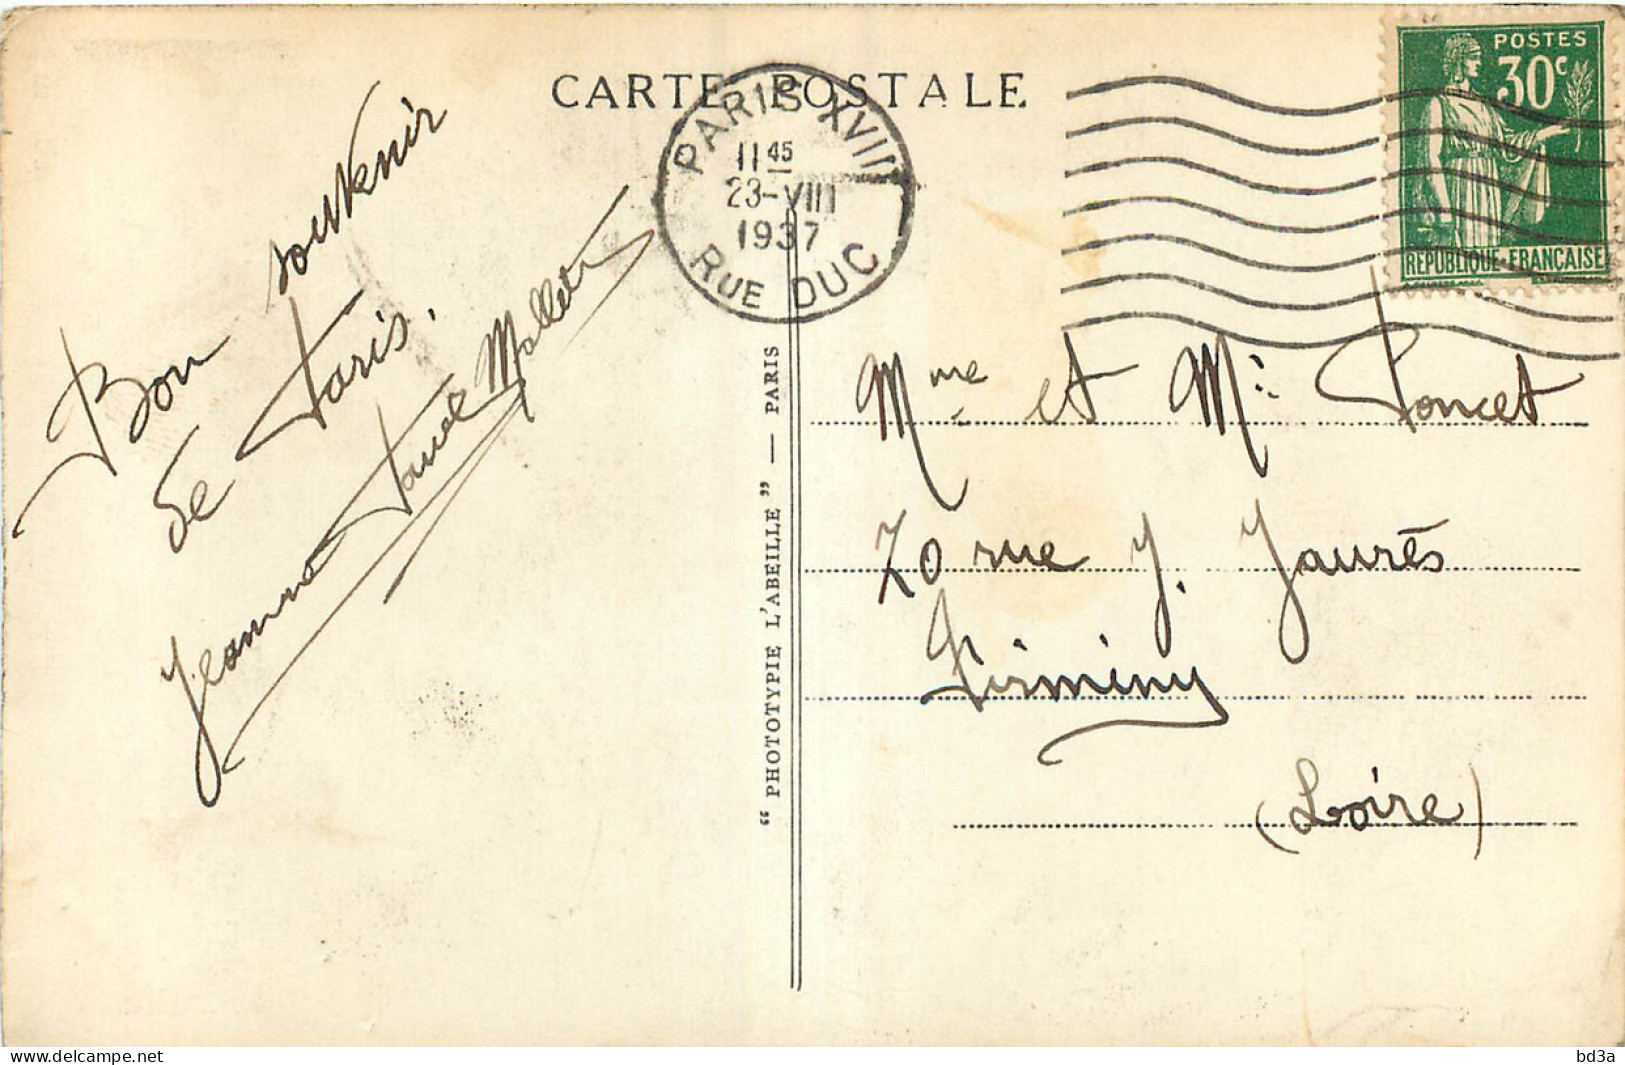 CARTE POSTALE
PARIS XVIII
11 45
23-VIII
1937
RUE DUC
POSTES
30c
REPUBLIQUE FRANÇAISE
Bon souvenir
de Paris.
Jeanne Mallet
"PHOTOTYPIE L'ABEILLE" — PARIS
Mme et Mr Poncet
70 rue J. Jaurès
Firminy
(Loire)
www.delcampe.net
bd3a